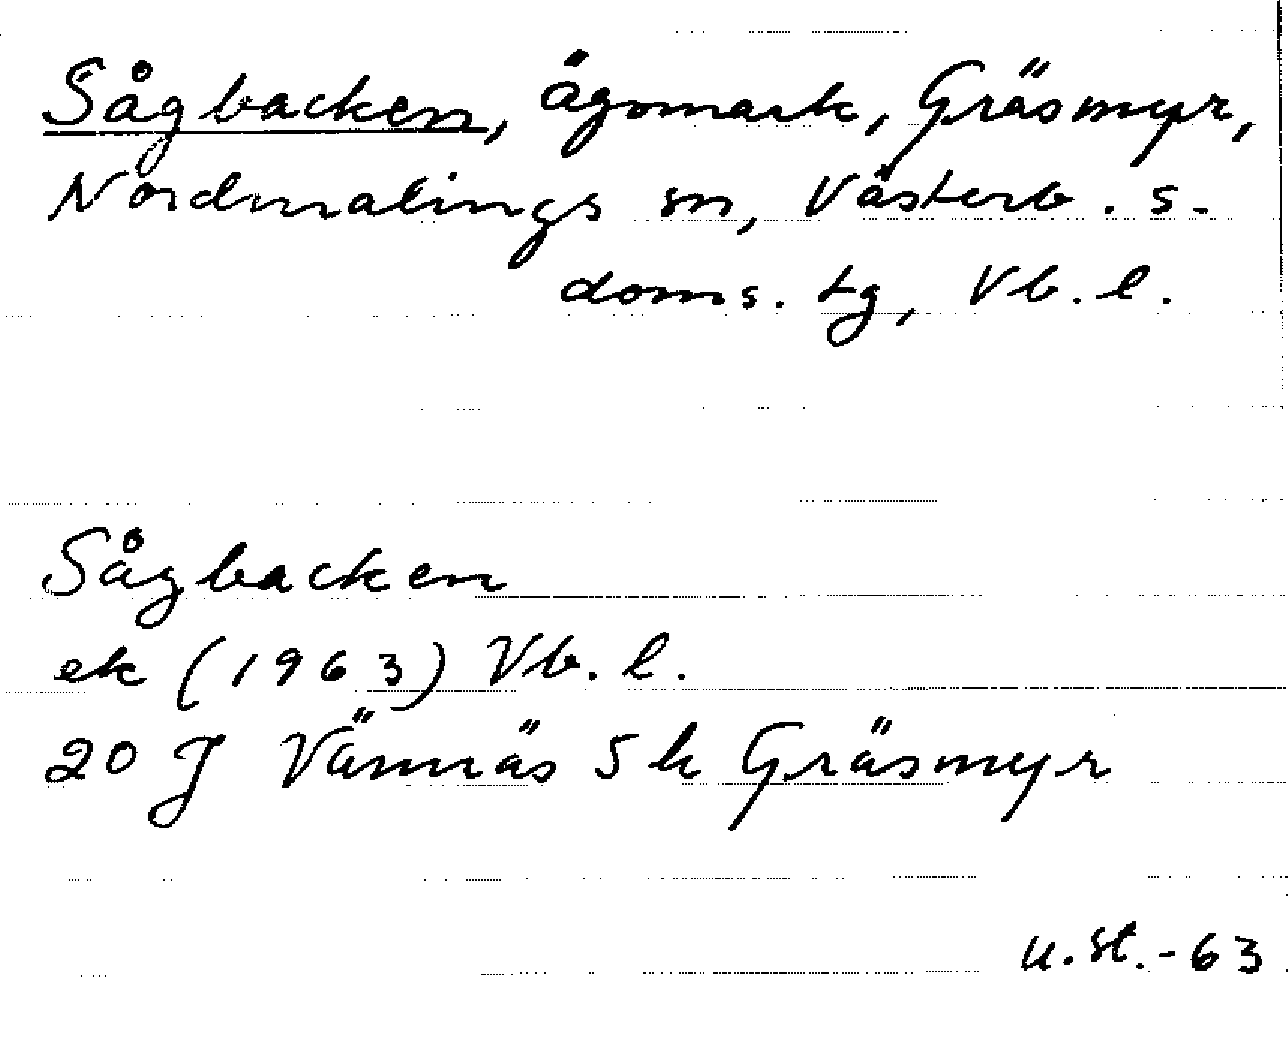 Sågbacken, ägomark, Gräsmyr,
Nordmalings sn, Västerb. s.
doms. tg, Vb. l.
Sågbacken
ek (1963) Vb. l.
20 J Vännäs 5 h Gräsmyr
u. st. - 63